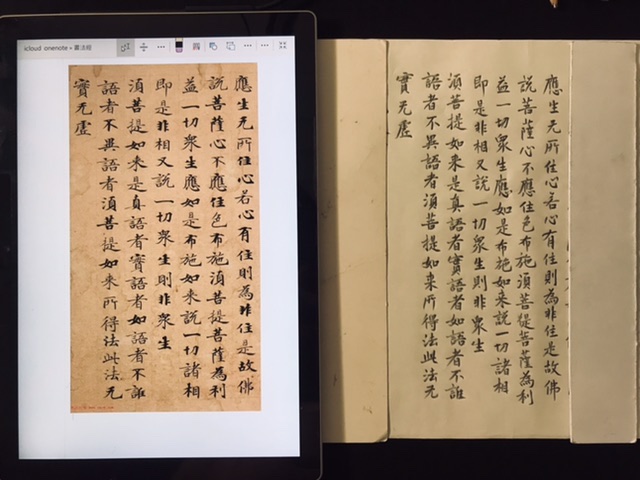 icloud onenote » 書法經
應生无所住心若心有住則為非住是故佛
說菩薩心不應住色布施湏菩提菩薩為利
益一切衆生應如是布施如來說一切諸相
即是非相又說一切衆生則非衆生
湏菩提如来是真語者實語者如語者不誑
語者不異語者湏菩提如来所得法此法无
實无虛
應生无所住心若心有住則為非住是故佛
說菩薩心不應住色布施湏菩提菩薩為利
益一切衆生應如是布施如来說一切諸相
即是非相又說一切衆生則非衆生
湏菩提如来是真語者實語者如語者不誑
語者不異語者湏菩提如来所得法此法无
實无虛